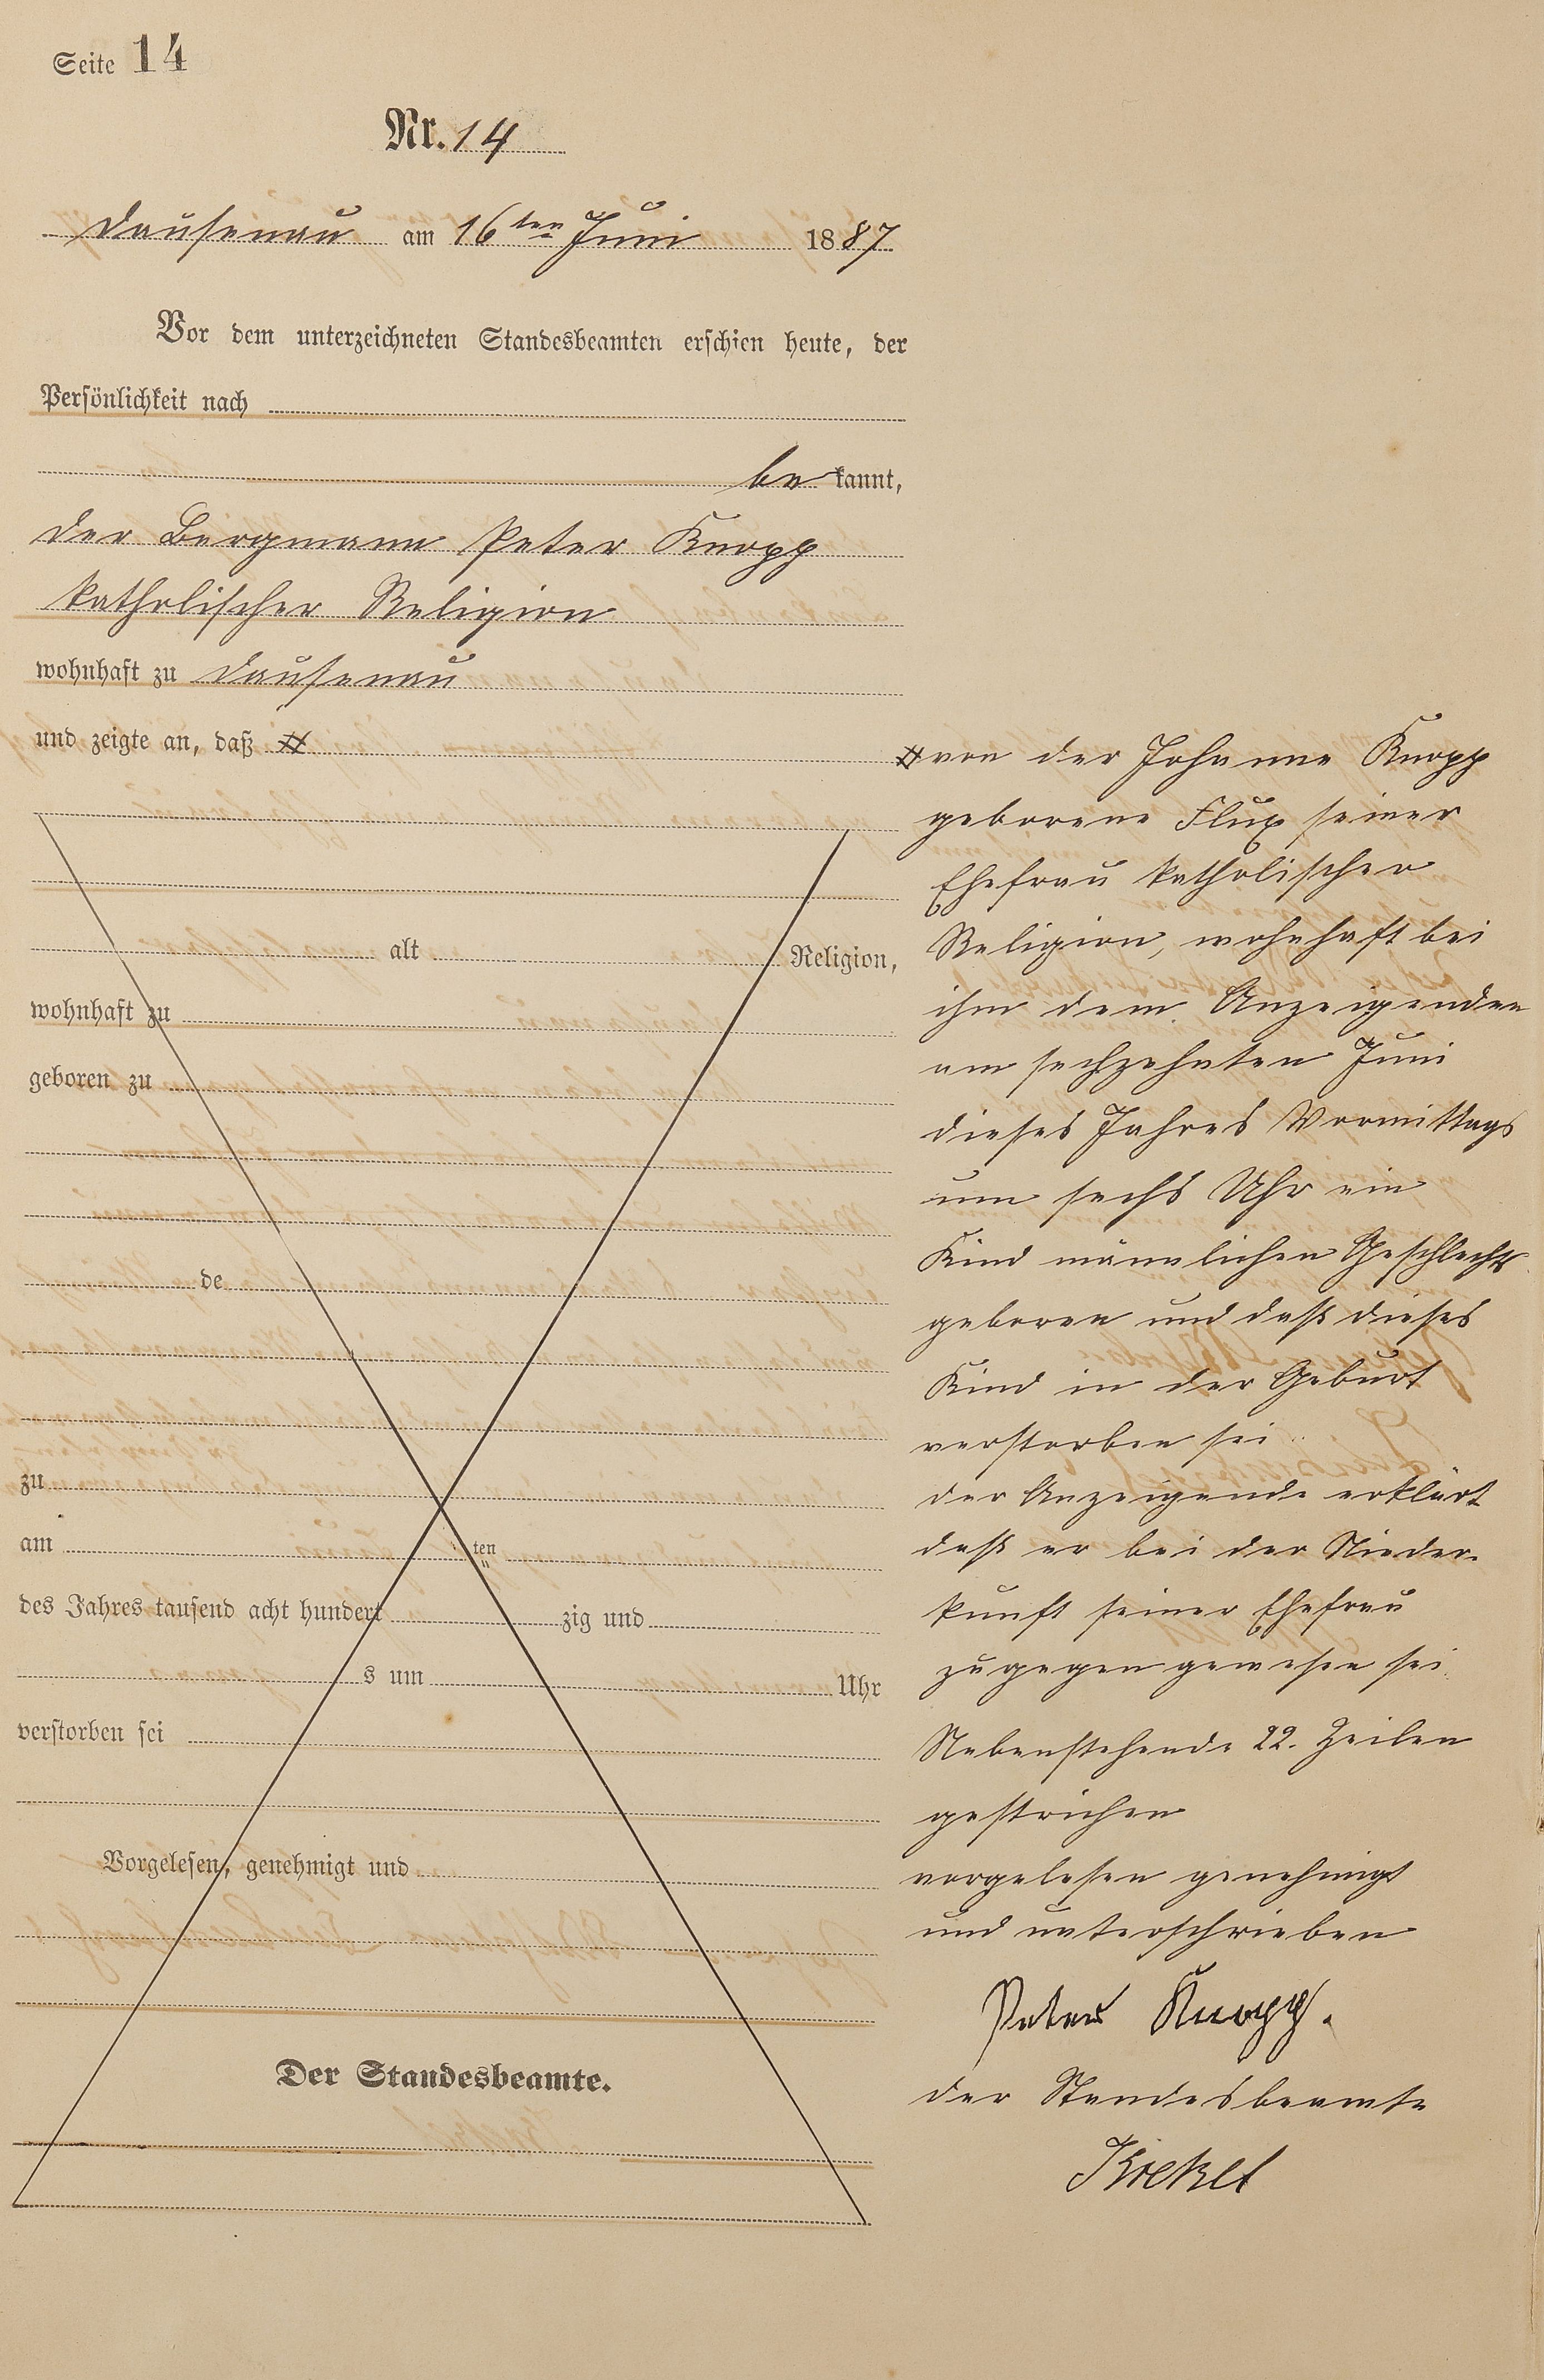 Seite 14
Nr. 14
Dausenau am 16ten Juni 1887
Vor dem unterzeichneten Standesbeamten erschien heute, der
Persönlichkeit nach
be kannt,
der Bergmann Peter Knopp
katholischer Religion
wohnhaft zu Dausenau
und zeigte an, daß
alt Religion,
wohnhaft zu
geboren zu
de
zu
am ten
des Jahres tausend acht hundert zig und
s um Uhr
verstorben sei
Vorgelesen, genehmigt und
Der Standesbeamte.
von der Johanne Knopp
geborene Flux seiner
Ehefrau katholischer
Religion, wohnhaft bei
ihm dem Anzeigenden
am sechzehnten Juni
dieses Jahres Vormittags
um sechs Uhr ein
Kind männlichen Geschlechts
geboren und daß dieses
Kind in der Geburt
verstorben sei.
der Anzeigende erklärt
daß er bei der Nieder-
kunft seiner Ehefrau
zugegen gewesen sei.
Nebenstehende 22. Zeilen
gestrichen
vorgelesen genehmigt
und unterschrieben
Peter Knopp.
der Standesbeamte